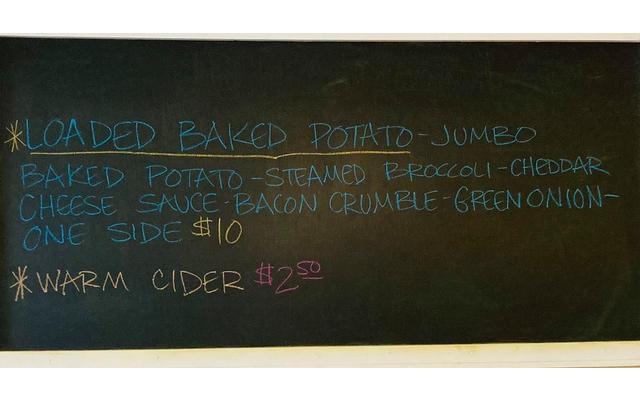 *LOADED BAKED POTATO-JUMBO
BAKED POTATO-STEAMED BROCCOLI-CHEDDAR
CHEESE SAUCE-BACON CRUMBLE-GREEN ONION-
ONE SIDE $10
*WARM CIDER $2.50